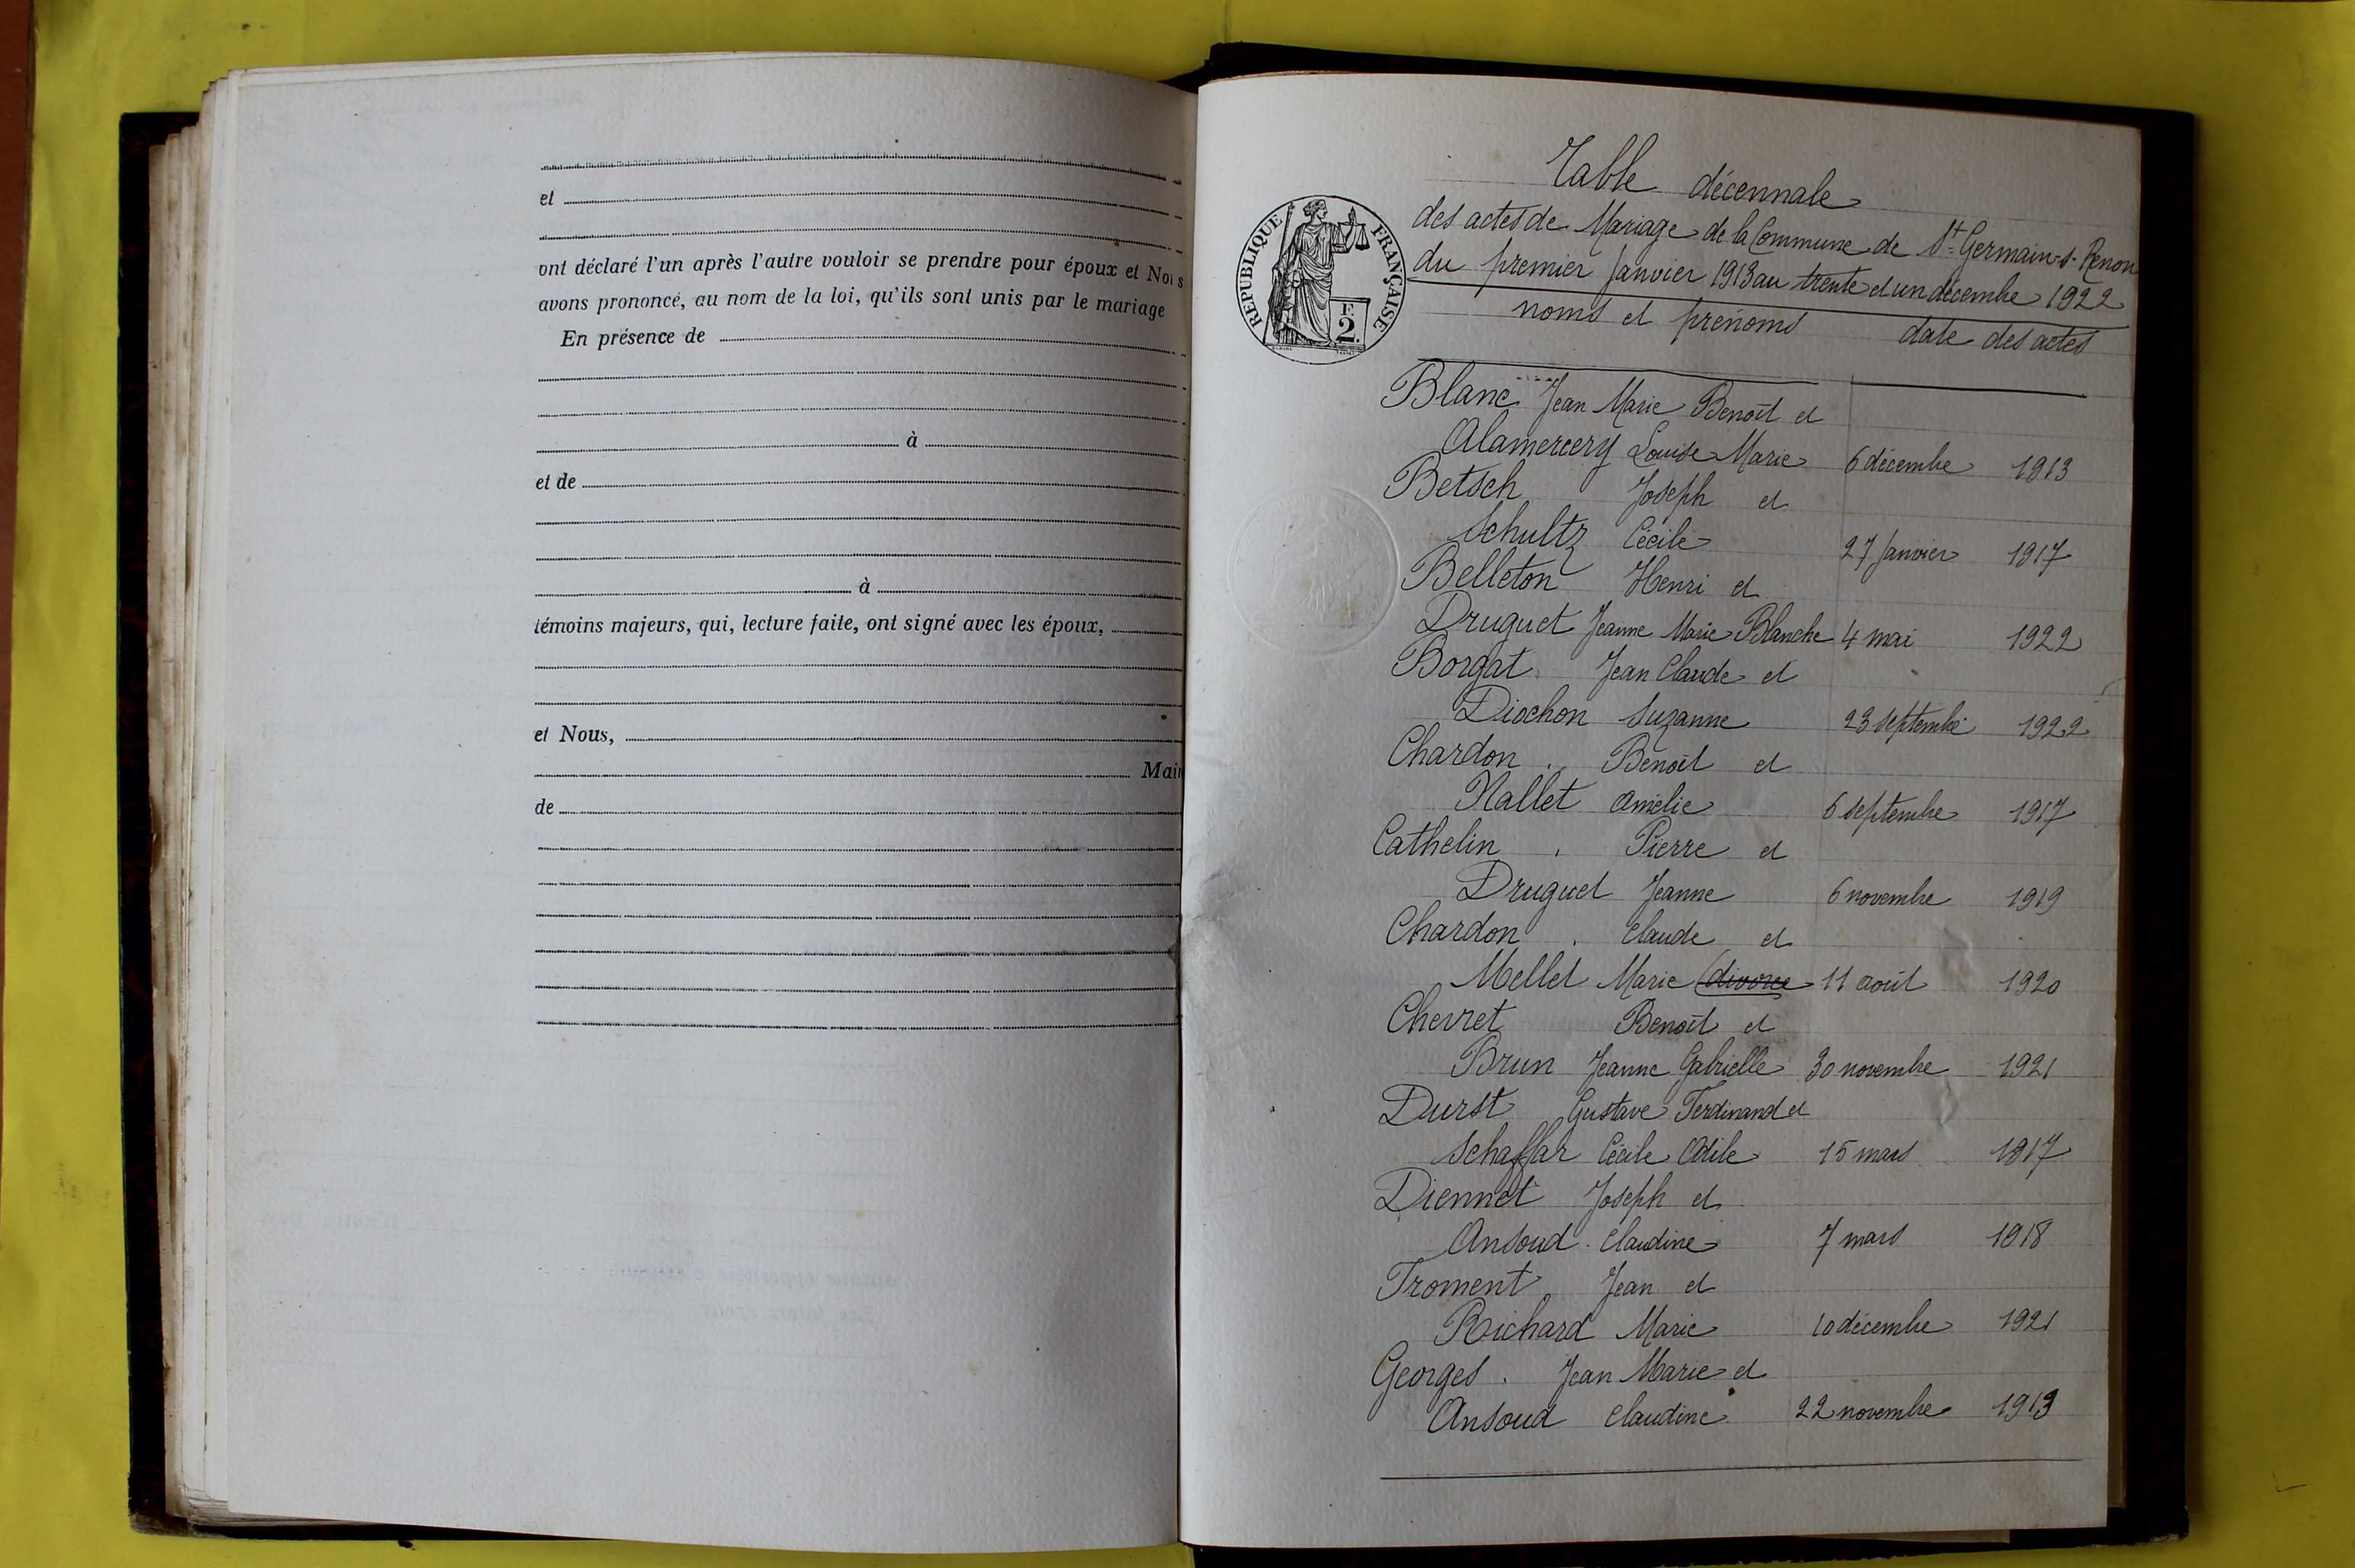 et
ont déclaré l'un après l'autre vouloir se prendre pour époux et Nous
avons prononcé, au nom de la loi, qu'ils sont unis par le mariage
En présence de
à
et de
à
témoins majeurs, qui, lecture faite, ont signé avec les époux,
et Nous,
Mair
de
RÉPUBLIQUE FRANÇAISE
F.
2.
Table décennale
des actes de Mariage de la Commune de St Germain-s-Renon
du premier Janvier 1913 au trente et un décembre 1922
noms et prénoms date des actes
Blanc Jean Marie Benoît et
Alamercery Louise Marie 6 décembre 1913
Betsch Joseph et
Schultz Cécile 27 Janvier 1917
Belleton Henri et
Druguet Jeanne Marie Blanche 4 mai 1922
Borgat Jean Claude et
Diochon Suzanne 23 septembre 1922
Chardon Benoît et
Nallet Amélie 6 septembre 1917
Cathelin Pierre et
Druguet Jeanne 6 novembre 1919
Chardon Claude et
Mellet Marie (divorce 11 août 1920
Chevret Benoît et
Brun Jeanne Gabrielle 30 novembre 1921
Durst Gustave Ferdinand et
Schaffar Cécile Odile 15 mars 1917
Diennet Joseph et
Ansoud Claudine 7 mars 1918
Froment Jean et
Richard Marie 10 décembre 1921
Georges Jean Marie et
Ansoud Claudine 22 novembre 1913